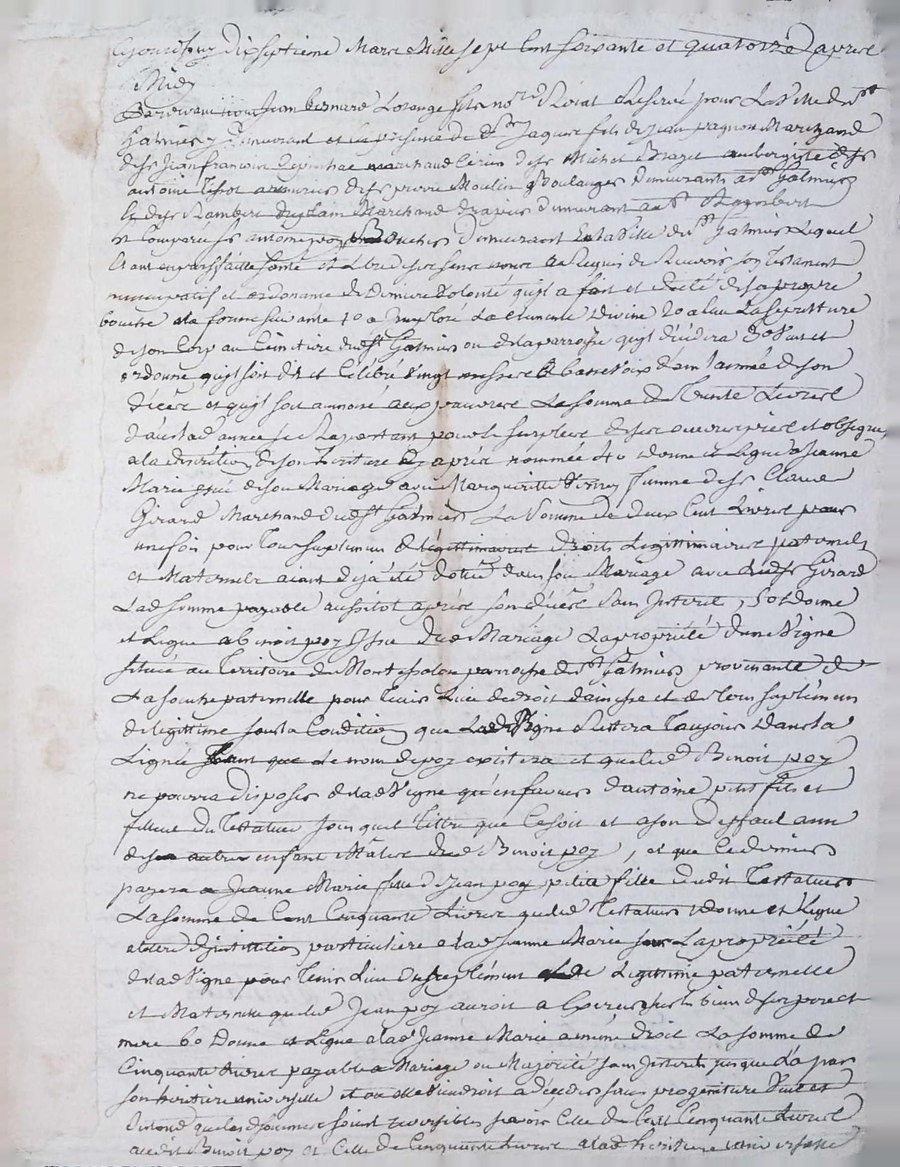 dixseptieme Mars Mille sept cent soixante et quatorze apres
Midy
Pardevant nous Jean Bernard fils no.re Roial Reservé pour La Ville de S.t
Galmier demeurant et en presence de Jaques fils de Jean pagnon Marchand
de Sr Jean francois marchand de Sr Michel aubergiste de Sr
antoine de Sr pierre Moulin Boulanger demeurants a S.t Galmier
et de Sr Lambert Marchand drapier demeurant au
et Comparu Sr antoine poy demeurant en la Ville de S.t Galmier Lequel
Etant en parfaitte santé et Libre de ses sens nous a Requis de Recevoir son Testament
nuncupatif et ordonance de Derniere Volonté qu'il a fait et dicté de sa propre
bouche a la forme suivante 1o a Imploré La clemence Divine 2o a elu La sepulture
de son Corp au Cimetiere dud S.t Galmier ou de la paroisse qu'il décédera 3o Veut et
ordonne qu'il soit dit et Celebré Vingt messes a basse voix dans l'année de son
décès et qu'il soit aumoné aux pauvres La somme de Trente Livres
dans lad année se Raportant pour le surplus de ses œuvres pies et obseques
a la discretion de son heritiere cy apres nommée 4o donne et Legue a Jeanne
Marie issue de son Mariage avec Marguerite femme de Sr Claude
Girard Marchand dud S.t Galmier La Somme de deux Cent Livres pour
une fois pour Tous suplement de droits Legittimaires paternels
et Maternels aiant deja été dotée dans son Mariage avec Led Sr Girard
Lad somme payable aussitot apres son décès sans Interets, 5o donne
et Legue a benoit poy Issu dud Mariage La propriété d'une Vigne
située au Territoire de paroisse de S.t Galmier provenante de
La souche paternelle pour Tenir Lieu de droit d'ainesse et de Tous suplement
de legittime sous la Condition que Lad Vigne Restera Toujours dans la
Lignée Tant que Le nom de poy existera et que led Benoit poy
ne pourra disposer de lad Vigne qu'en faveur d'antoine petit fils et
filleul du Testateur sous quel Tittre que Ce soit et a son deffaut a un
des autres enfant Males dud Benoit poy, et que Ce dernier
payera a Jeanne Marie fille de Jean poy petite fille dudit Testateur
La somme de Cent Cinquante Livres que led Testateur donne et Legue
a titre d'institution particuliere a lad Jeanne Marie sur La propriété
de lad Vigne pour Tenir Lieu du suplement de Legittime paternelle
et Maternelle que led Jean poy auroit a Exercer sur les biens de ses pere et
mere 6o Donne et Legue a lad Jeanne Marie a meme droit La somme de
Cinquante Livres payable a Mariage ou Majorité sans Interets jusque La par
son heritiere universelle et ou elle Viendroit a deceder sans progeniture Veut et
Entend que Les d sommes soient reversibles savoir Celle de Cent Cinquante Livres
audit Benoit poy et Celle de Cinquante Livres a lad heritiere universelle